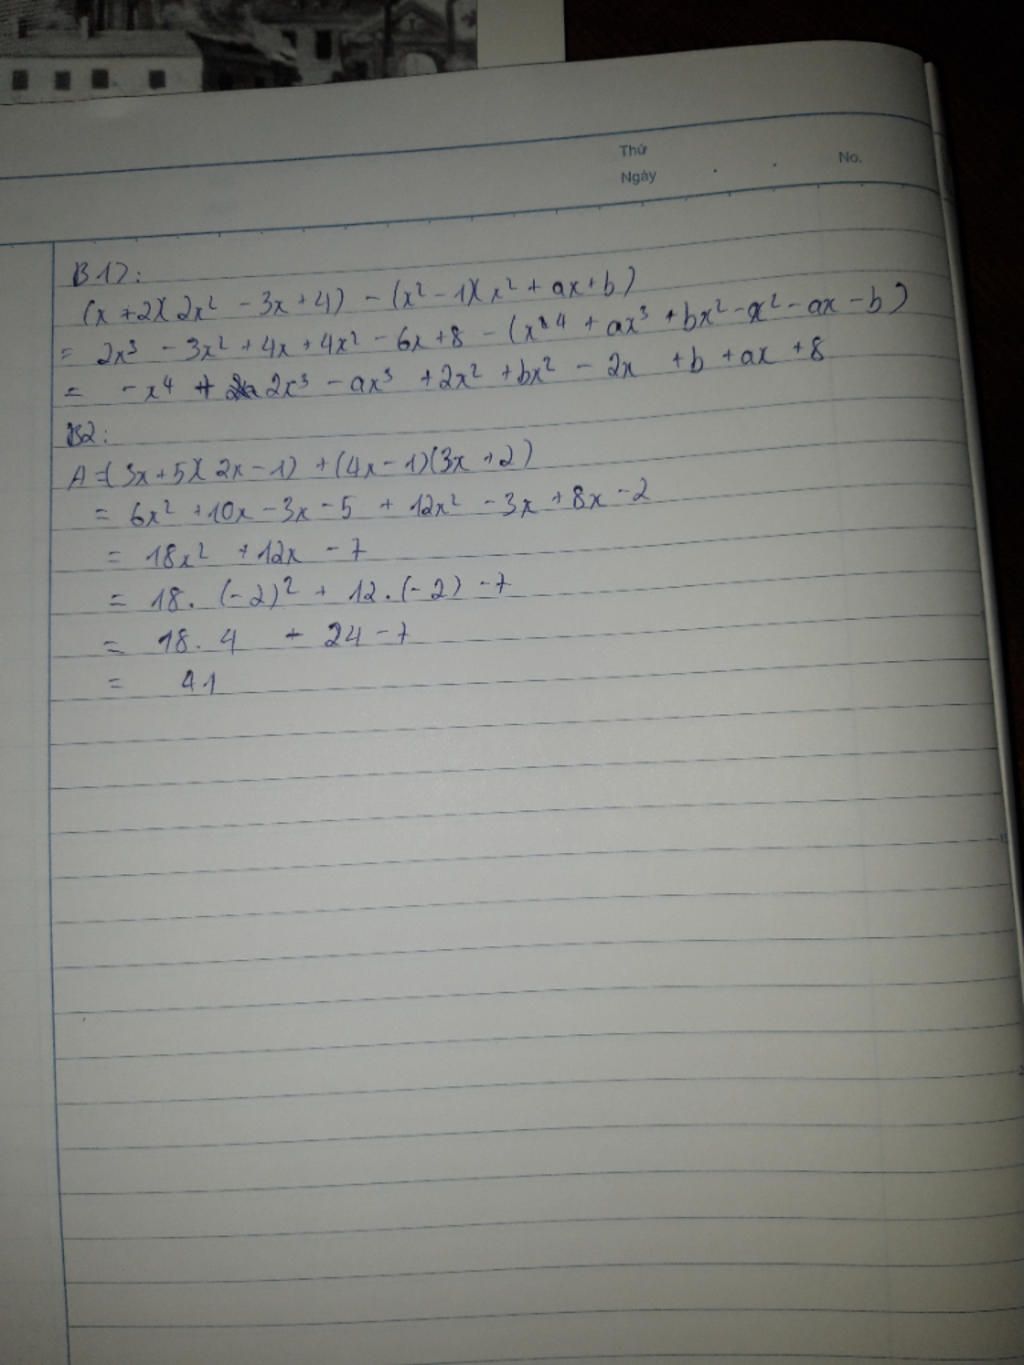 Thứ
Ngày
No.
B1):
(x + 2)(2x² - 3x + 4) - (x² - 1)(x² + ax + b)
= 2x³ - 3x² + 4x + 4x² - 6x + 8 - (x⁴ + ax³ + bx² - x² - ax - b)
= - x⁴ + 2x³ - ax³ + 2x² + bx² - 2x + b + ax + 8
B2:
A = (3x + 5)(2x - 1) + (4x - 1)(3x + 2)
= 6x² + 10x - 3x - 5 + 12x² - 3x + 8x - 2
= 18x² + 12x - 7
= 18. (-2)² + 12. (-2) - 7
= 18. 4 - 24 - 7
= 41